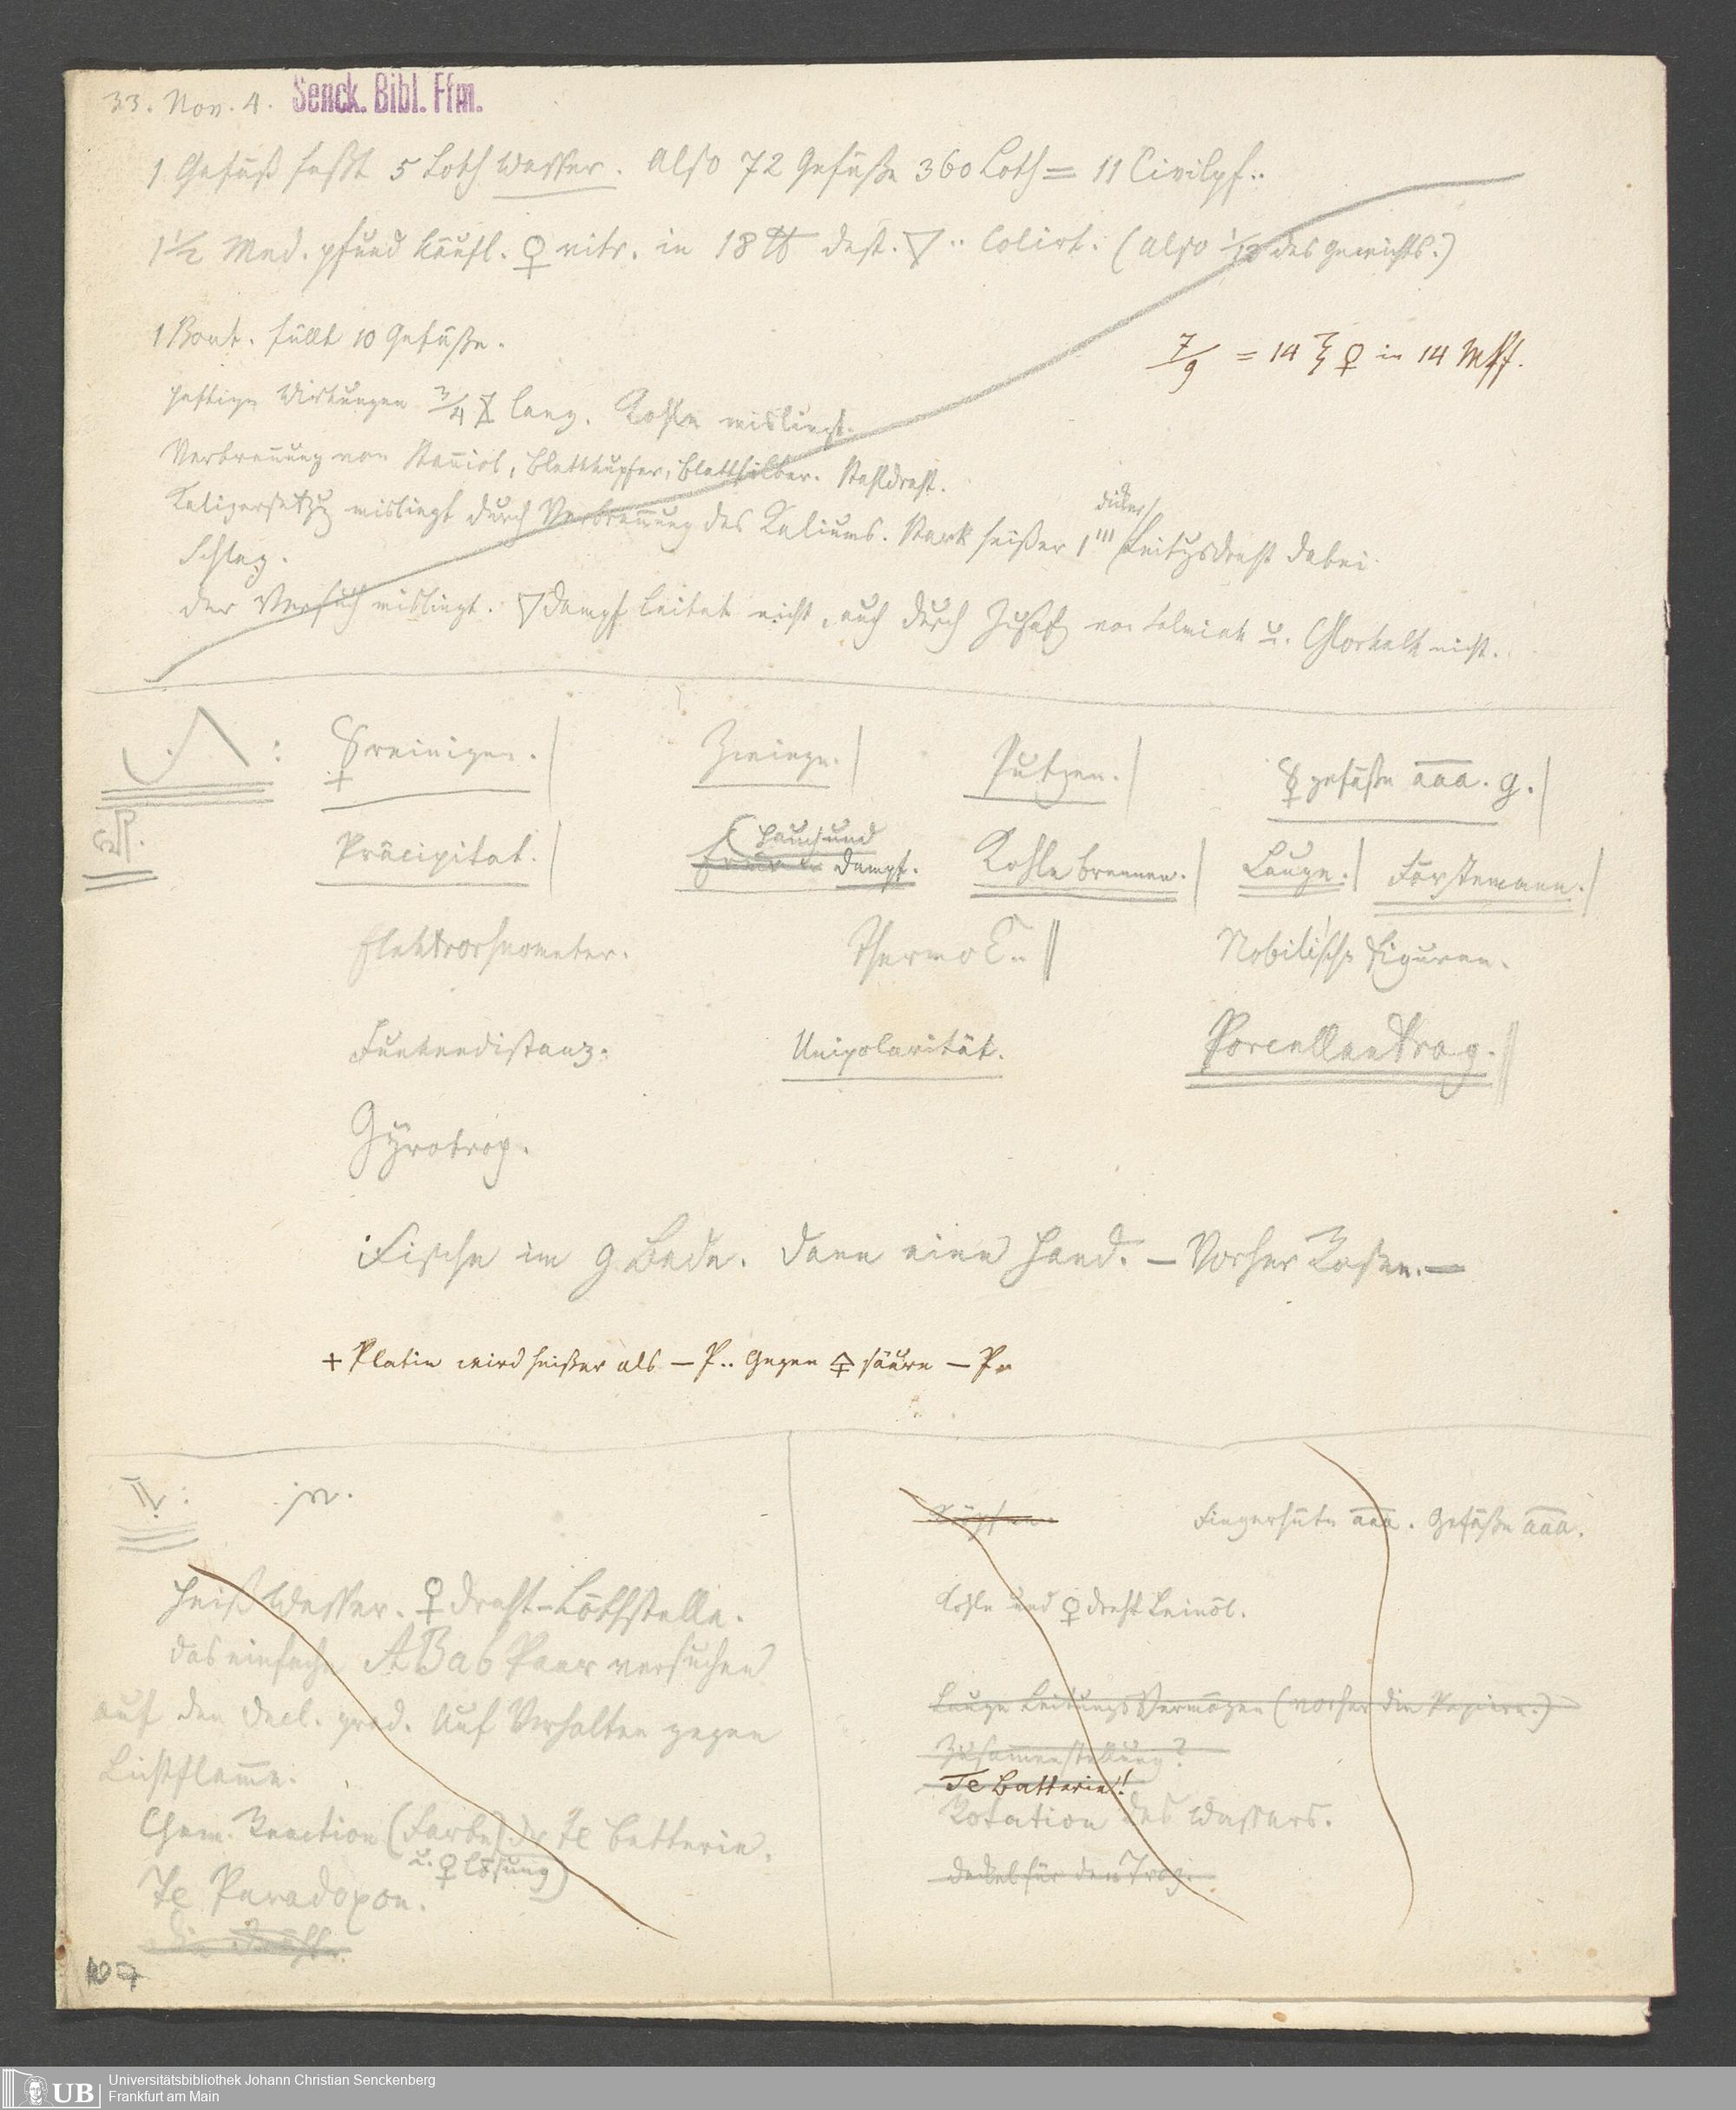 33. Nov. 4. Senck. Bibl. Ffm.
1 Gefäß faßt 5 Loth Wasser. Also 72 Gefäße 360 Loth = 11 Civilpf..
1 1/2 Med. pfund käufl. ♀ nitr. in 18 ℔ dest. ▽.. Colirt. (Also 1/12 des Gewichts.)
1 Bout. füllt 10 Gefäße.
7/9 = 14 ℥ ♀ in 14 MPf.
heftige Wirkungen 3/4 lang. Kohle mislingt.
Verbrennung von Stanniol, Blattkupfer, Blattsilber. Stahldraht.
Kalizersetzg mislingt durch Verbrennung des Kaliums. Stark heißer 1''' dicker Leitgsdraht dabei.
Schlag.
Der Versuch mislingt. ▽dampf leitet nicht, auch durch Zusatz von Salmiak u. Chlorkalk nicht.
☿ reinigen. | Zweige. | Putzen. | ☿ gefäße aaa. g. |
Präcipitat. | Dampf. Kohle brennen. | Lauge. | Förstemann. |
Hauch und
Elektrorheometer. Thermo E.. || Nobilische Figuren.
Funkendistanz. Unipolarität. Porcellantrog. ||
Gyrotrop.
Fische im g. Bade. Dann eine Hand. — Vorher Rosen. —
+ Platin wird heißer als — P.. Gegen säure — P
IV:
Heiß Wasser. ♀ draht-Löthstelle.
Das einfache ABab Paar versuchen
auf den decl. grad. Auf Verhalten gegen
Lichtflamme.
Chem. Reaction (Farbe) der Te Batterie.
u. ♀ lösung)
Te Paradoxon.
Die Drähte.
Fingerhüte aaa. Gefäße aaa.
Kohle und ♀ draht Leinöl.
Lauge LeitungsVermögen (vorher die Papiere.)
Zusammenstellung?
Te Batterie!!
Rotation des Wassers.
Deckel für den Trog.
107
UB Universitätsbibliothek Johann Christian Senckenberg
Frankfurt am Main